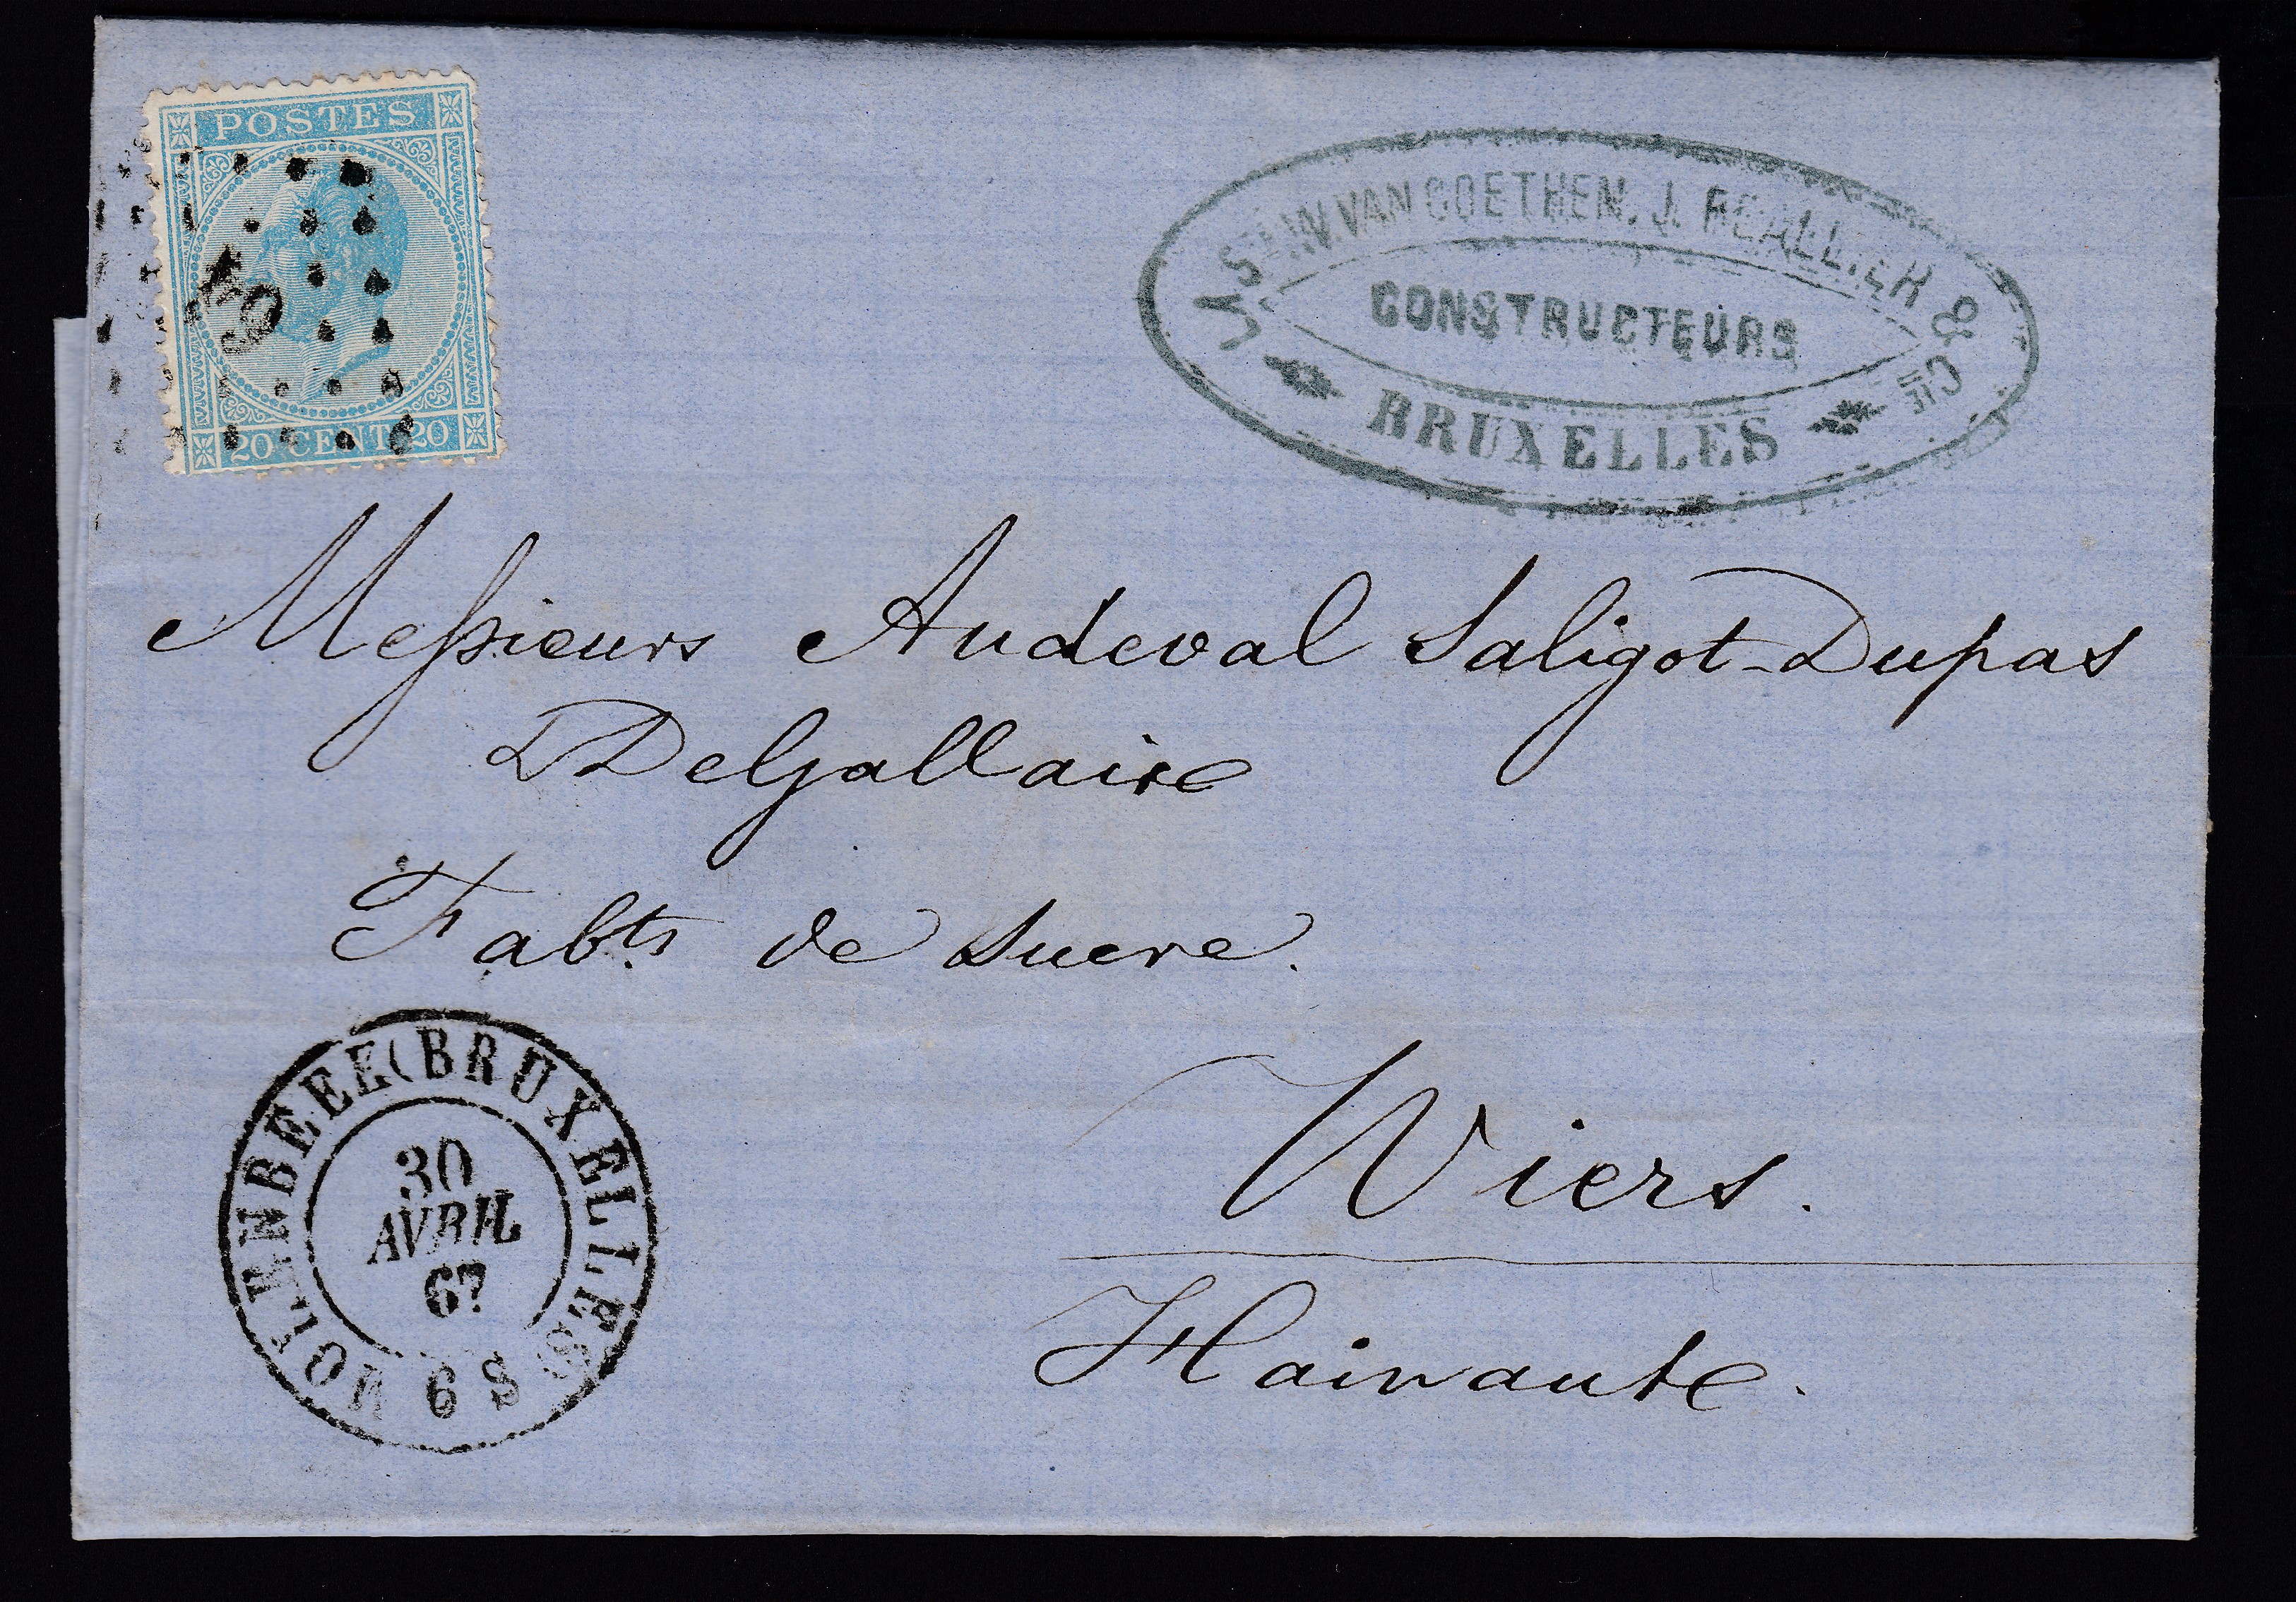 POSTES
20 CENT. 20
VAN GOETHEN. J. REALLIER & Cie
CONSTRUCTEURS
BRUXELLES
Messieurs Andeval Saligot-Dupas
Delgallaire
Fabts de Sucre.
Wiers.
Hainaute.
MOLENBEEK (BRUXELLES)
30
AVRIL
67
6 S